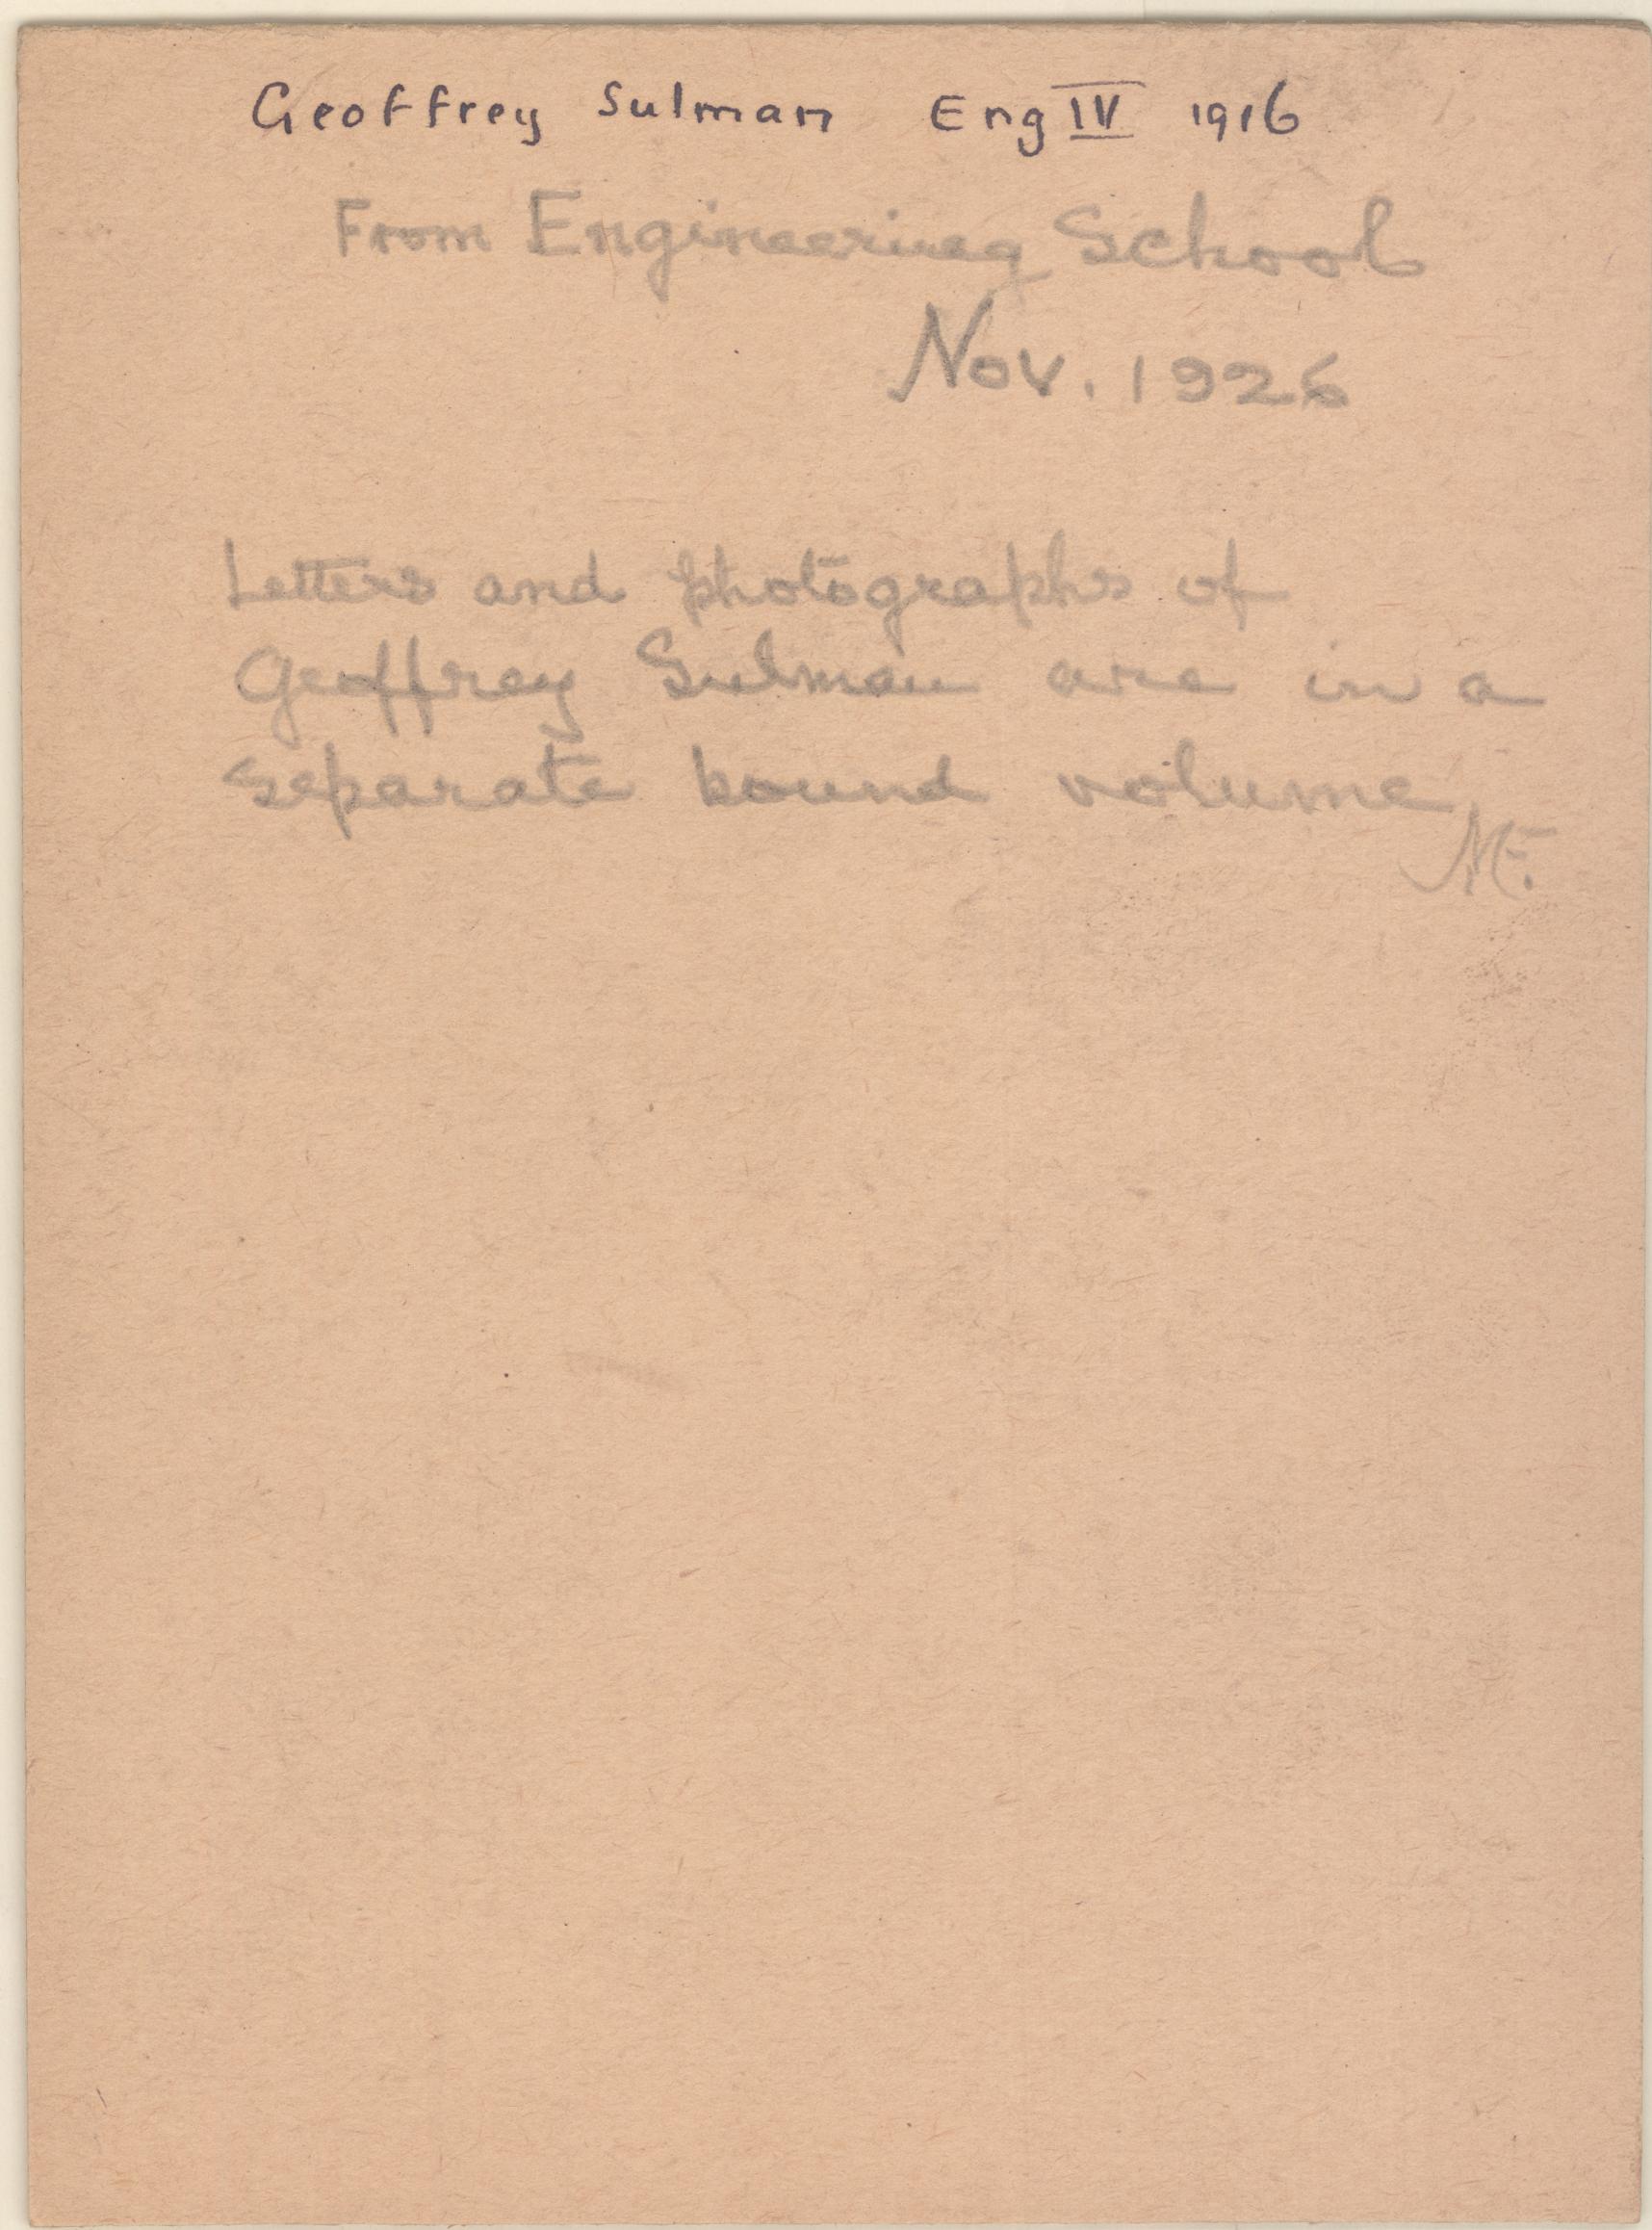 Geoffrey Sulman Eng IV 1916
From Engineering School
Nov. 1926
Letters and photographs of
Geoffrey Sulman are in a
separate bound volume